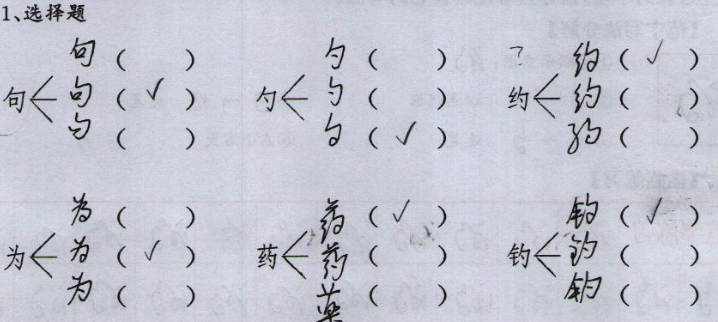 1、选择题
句 句（ ） 勺 勺（ ） ？ 约 约（✓）
句（✓） 勺（ ） 约（ ）
句（ ） 勺（✓） 约（ ）
为 为（ ） 药 药（✓） 钓 钓（✓）
为（✓） 药（ ） 钓（ ）
为（ ） 药（ ） 钓（ ）